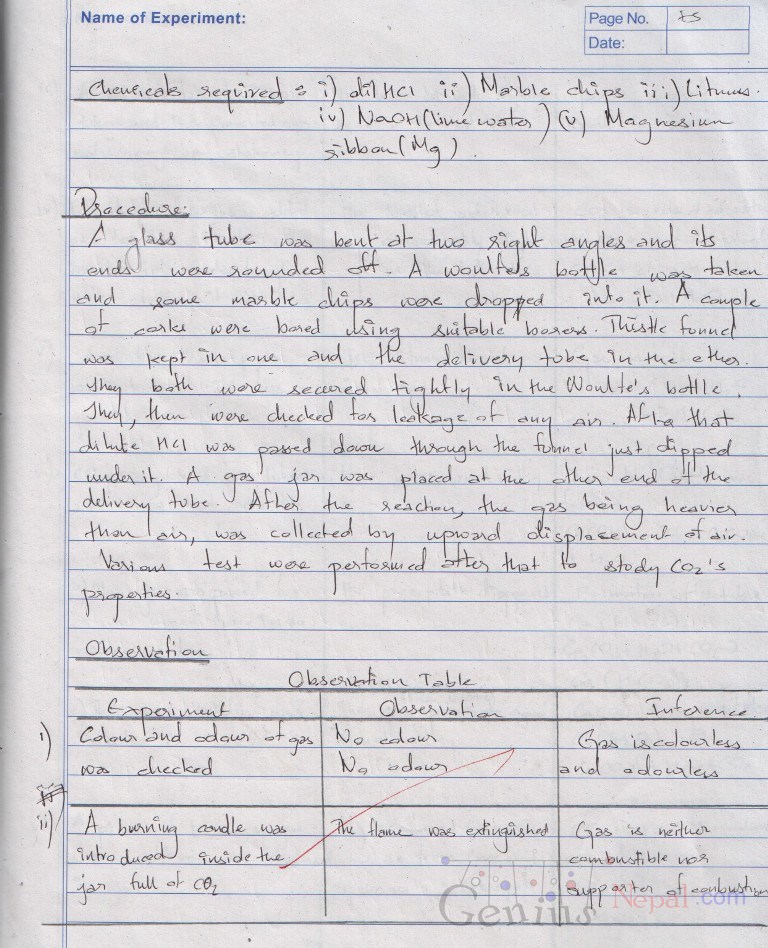 Name of Experiment:
Page No.
Date:
Chemicals required : i) dil HCl ii) Marble chips iii) Litmus.
iv) NaOH (lime water) (v) Magnesium
ribbon (Mg).
Procedure:
A glass tube was bent at two right angles and its
ends were rounded off. A woulfe's bottle was taken
and some marble chips were dropped into it. A couple
of corks were bored using suitable borers. Thistle funnel
was kept in one and the delivery tube in the other.
They both were secured tightly in the Woulfe's bottle.
They, then were checked for leakage of any air. After that
dilute HCl was passed down through the funnel just dipped
under it. A gas jar was placed at the other end of the
delivery tube. After the reaction, the gas being heavier
than air, was collected by upward displacement of air.
Various test were performed after that to study CO2's
properties.
Observation
Observation Table
Experiment Observation Inference
i) Colour and odour of gas No colour Gas is colourless
was checked No odour and odourless
ii) A burning candle was The flame was extinguished Gas is neither
introduced inside the combustible nor
jar full of CO2 supporter of combustion
Genius Nepal.com